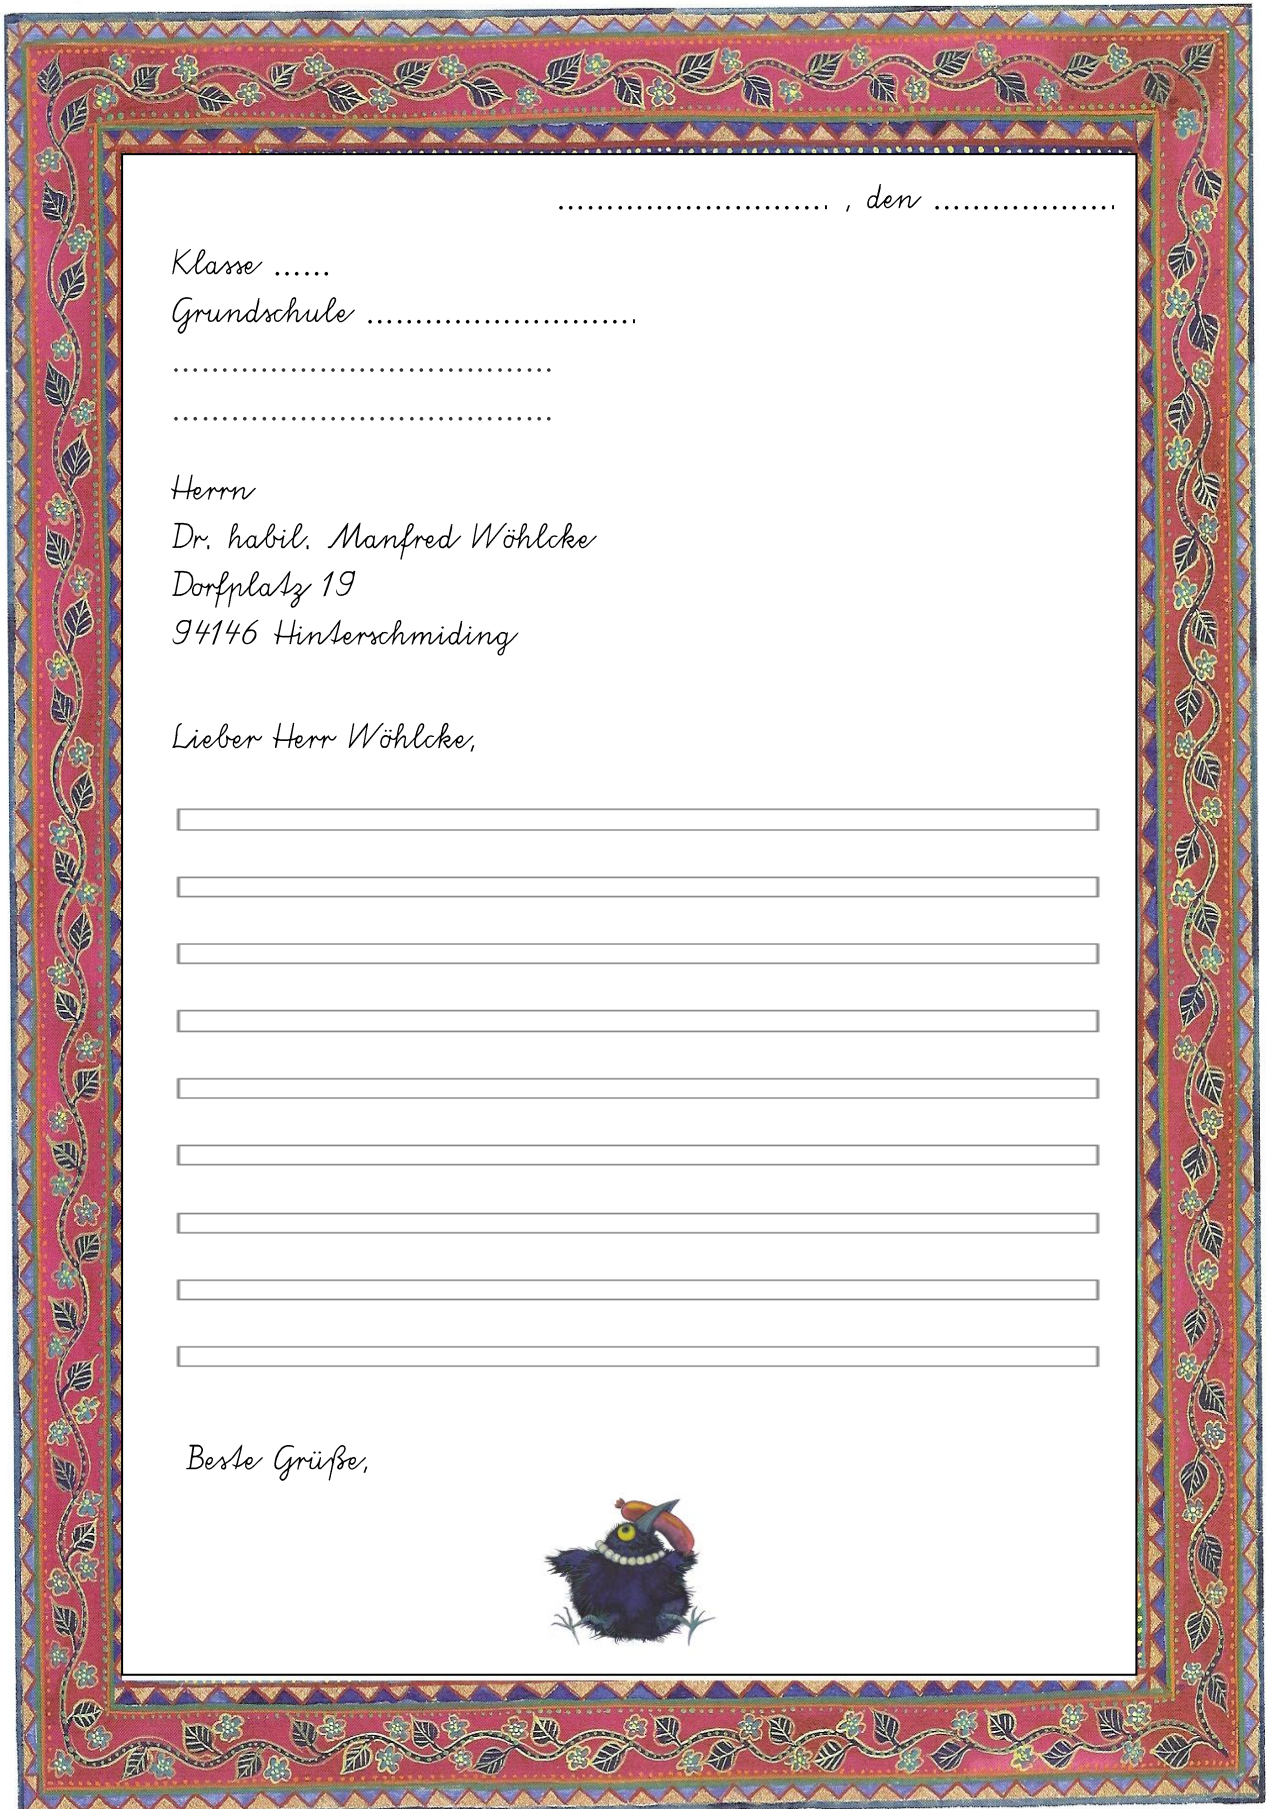 ........................... , den ..................
Klasse ......
Grundschule ...........................
......................................
......................................
Herrn
Dr. habil. Manfred Wöhlcke
Dorfplatz 19
94146 Hinterschmiding
Lieber Herr Wöhlcke,
Beste Grüße,